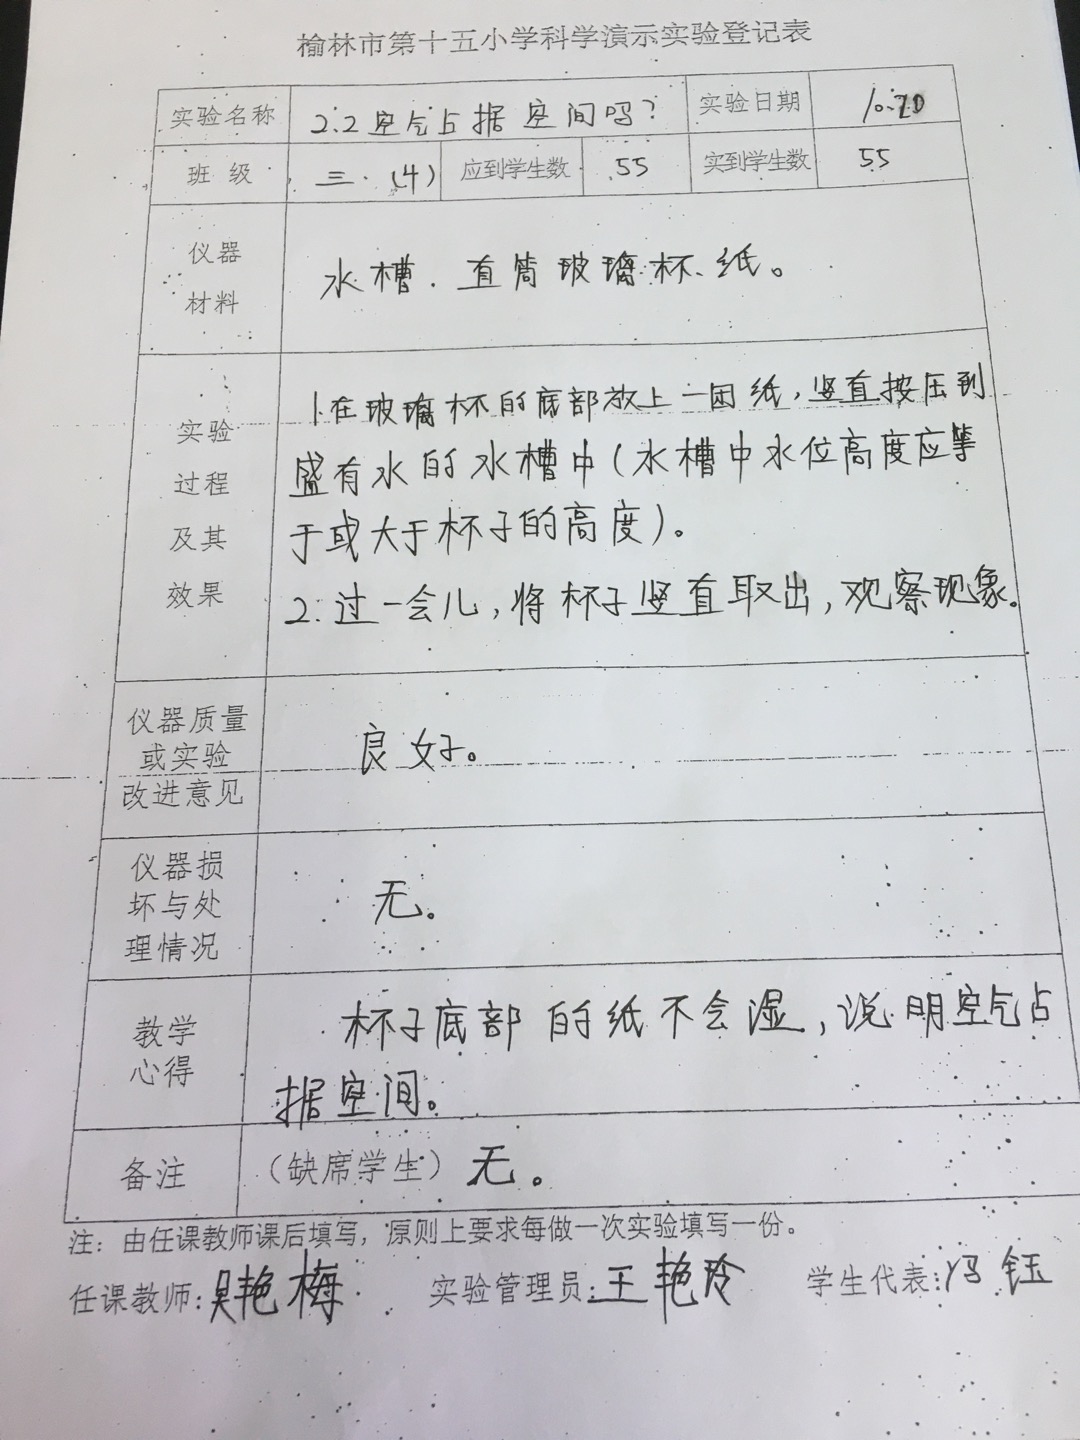 榆林市第十五小学科学演示实验登记表
实验名称 2.2空气占据空间吗? 实验日期 10.20
班级 三.(4) 应到学生数 55 实到学生数 55
仪器
材料
水槽.直筒玻璃杯、纸。
实验
过程
及其
效果
1.在玻璃杯的底部放上一团纸,竖直按压到
盛有水的水槽中(水槽中水位高度应等
于或大于杯子的高度)。
2.过一会儿,将杯子竖直取出,观察现象。
仪器质量
或实验
改进意见
良好。
仪器损
坏与处
理情况
无。
教学
心得
杯子底部的纸不会湿,说明空气占
据空间。
备注 (缺席学生)无。
注:由任课教师课后填写,原则上要求每做一次实验填写一份。
任课教师:吴艳梅 实验管理员:王艳玲 学生代表:冯钰